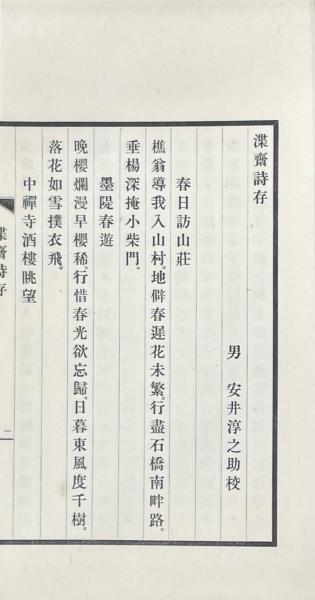 渫齋詩存
男　安井淳之助校
春日訪山莊
樵翁導我入山村。地僻春遲花未繁。行盡石橋南畔路。
垂楊深掩小柴門。
墨隄春遊
晚櫻爛漫早櫻稀。行惜春光欲忘歸。日暮東風度千樹。
落花如雪撲衣飛。
中禪寺酒樓眺望
渫齋詩存
一